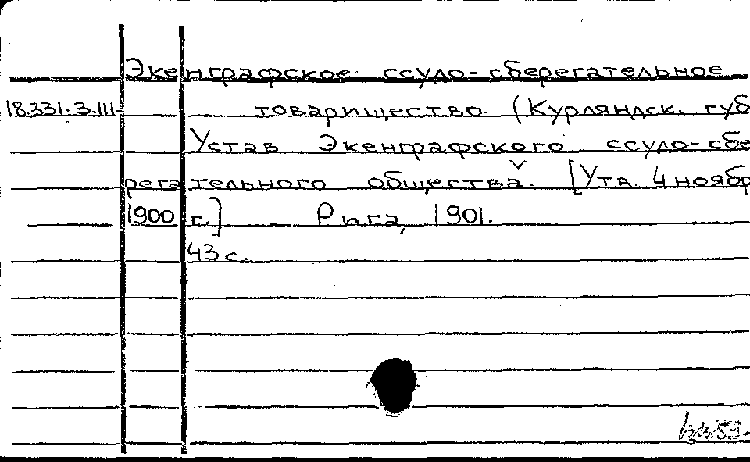 Экенграфское ссудо-сберегательное
18.331.3.111 товарищество (Курляндск. губ
Устав Экенграфского ссудо-сбе
регательного общества. [Утв. 4 ноябр
1900 г.] Рига, 1901.
43 с.